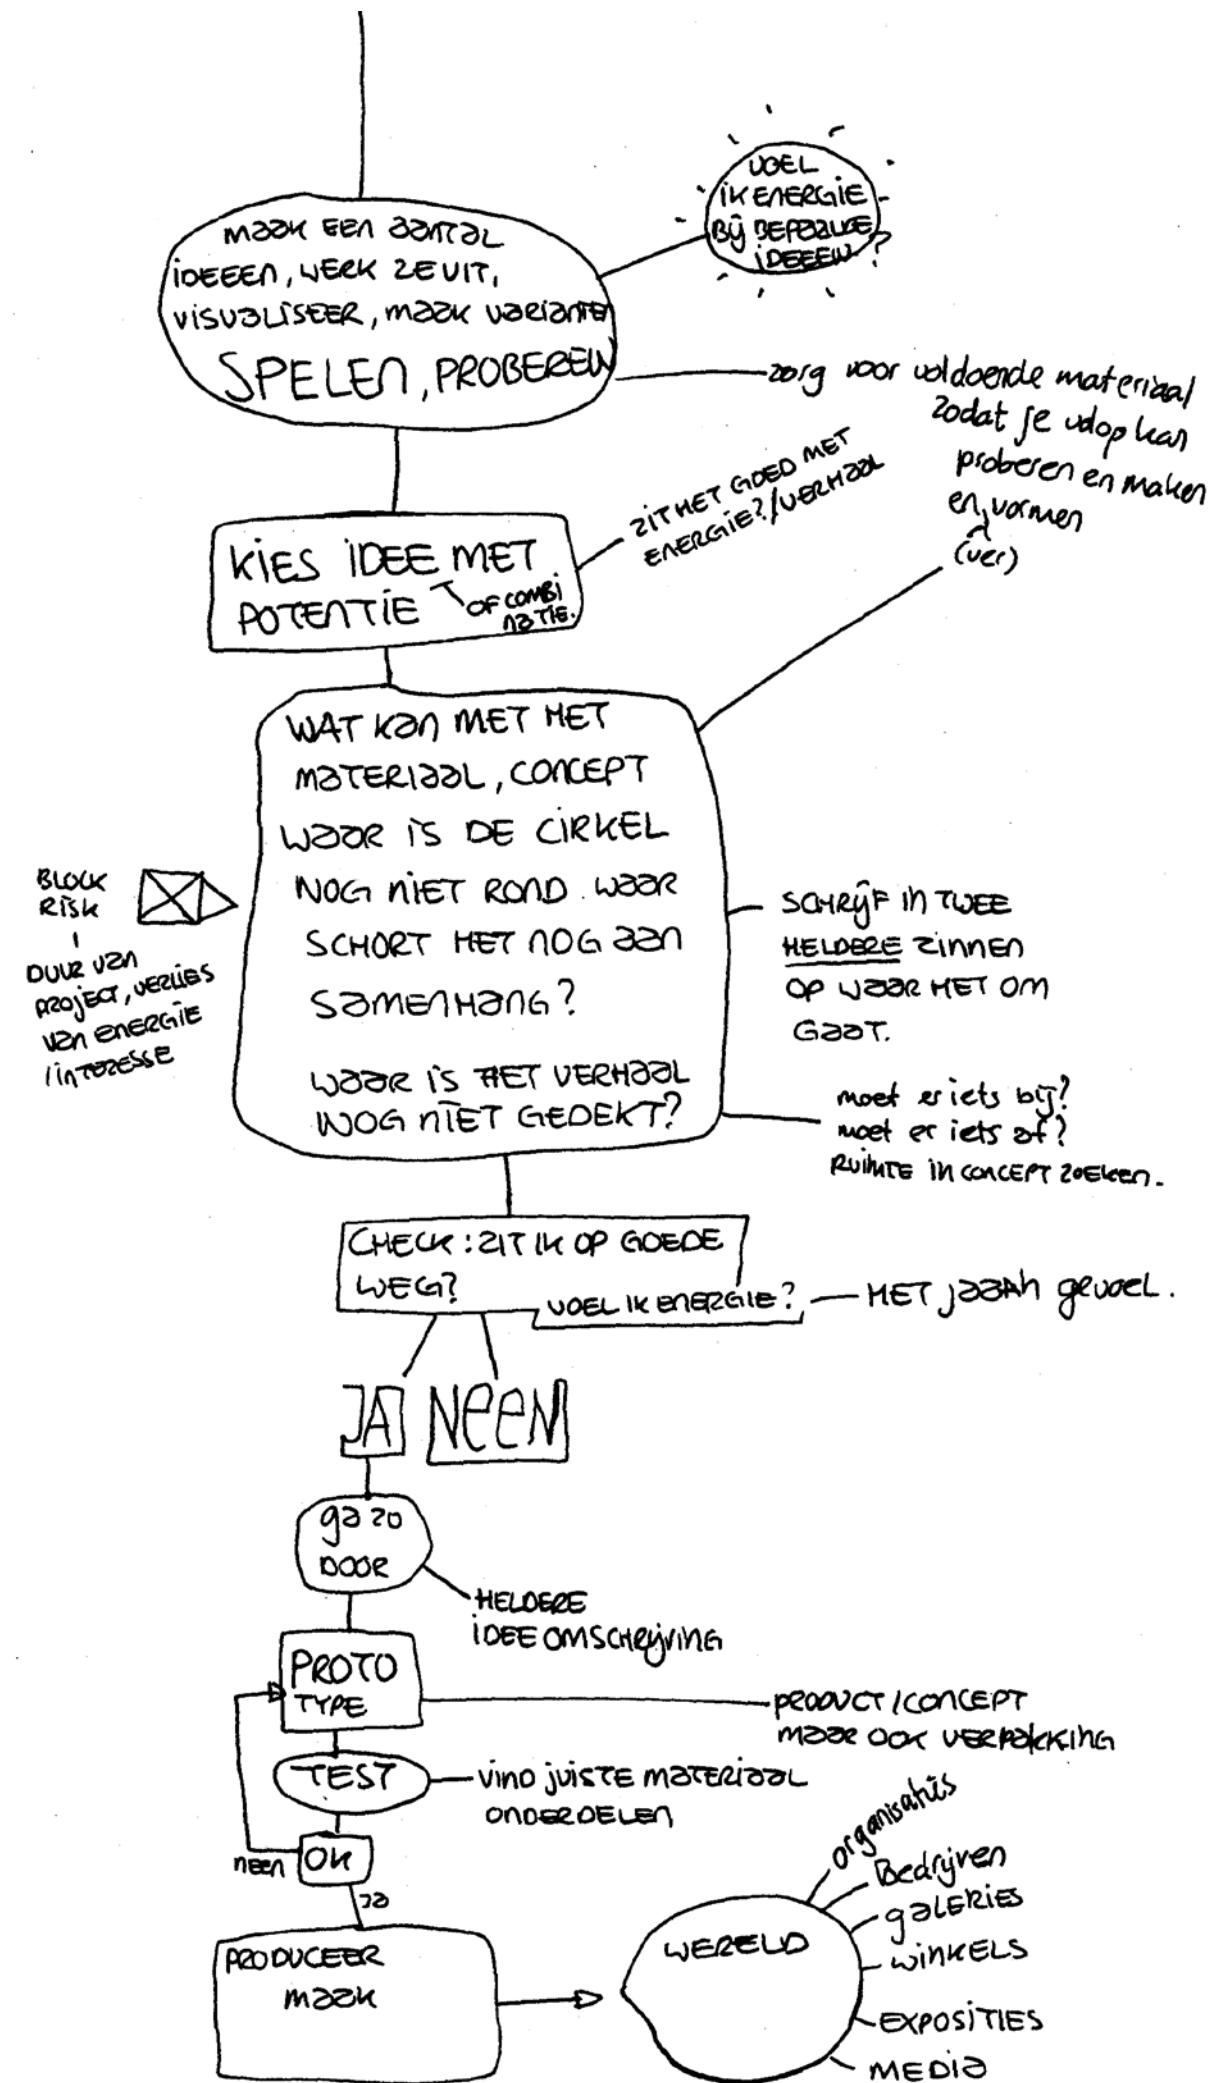 VOEL
IK ENERGIE
BIJ BEPAALDE
IDEEEN?
MAAK EEN AANTAL
IDEEEN, WERK ZE UIT,
VISUALISEER, MAAK VARIANTEN
SPELEN, PROBEREN
zorg voor voldoende materiaal
zodat je volop kan
proberen en maken
en vormen
(ver)
ZIT HET GOED MET
ENERGIE?/VERHAAL
KIES IDEE MET
POTENTIE
OF COMBI
NATIE.
WAT KAN MET HET
MATERIAAL, CONCEPT
WAAR IS DE CIRKEL
NOG NIET ROND. WAAR
SCHORT HET NOG AAN
SAMENHANG?
WAAR IS HET VERHAAL
NOG NIET GEDEKT?
BLOCK
RISK
DUUR VAN
PROJECT, VERLIES
VAN ENERGIE
/INTERESSE
SCHRIJF IN TWEE
HELDERE ZINNEN
OP WAAR HET OM
GAAT.
moet er iets bij?
moet er iets af?
RUIMTE IN CONCEPT ZOEKEN.
CHECK: ZIT IK OP GOEDE
WEG?
VOEL IK ENERGIE?
HET JAAAH gevoel.
JA
NEEN
ga zo
DOOR
HELDERE
IDEE OMSCHRIJVING
PROTO
TYPE
PRODUCT/CONCEPT
MAAR OOK VERPAKKING
TEST
VIND JUISTE MATERIAAL
ONDERDELEN
OK
neen
Ja
PRODUCEER
MAAK
WERELD
organisaties
Bedrijven
GALERIES
WINKELS
EXPOSITIES
MEDIA